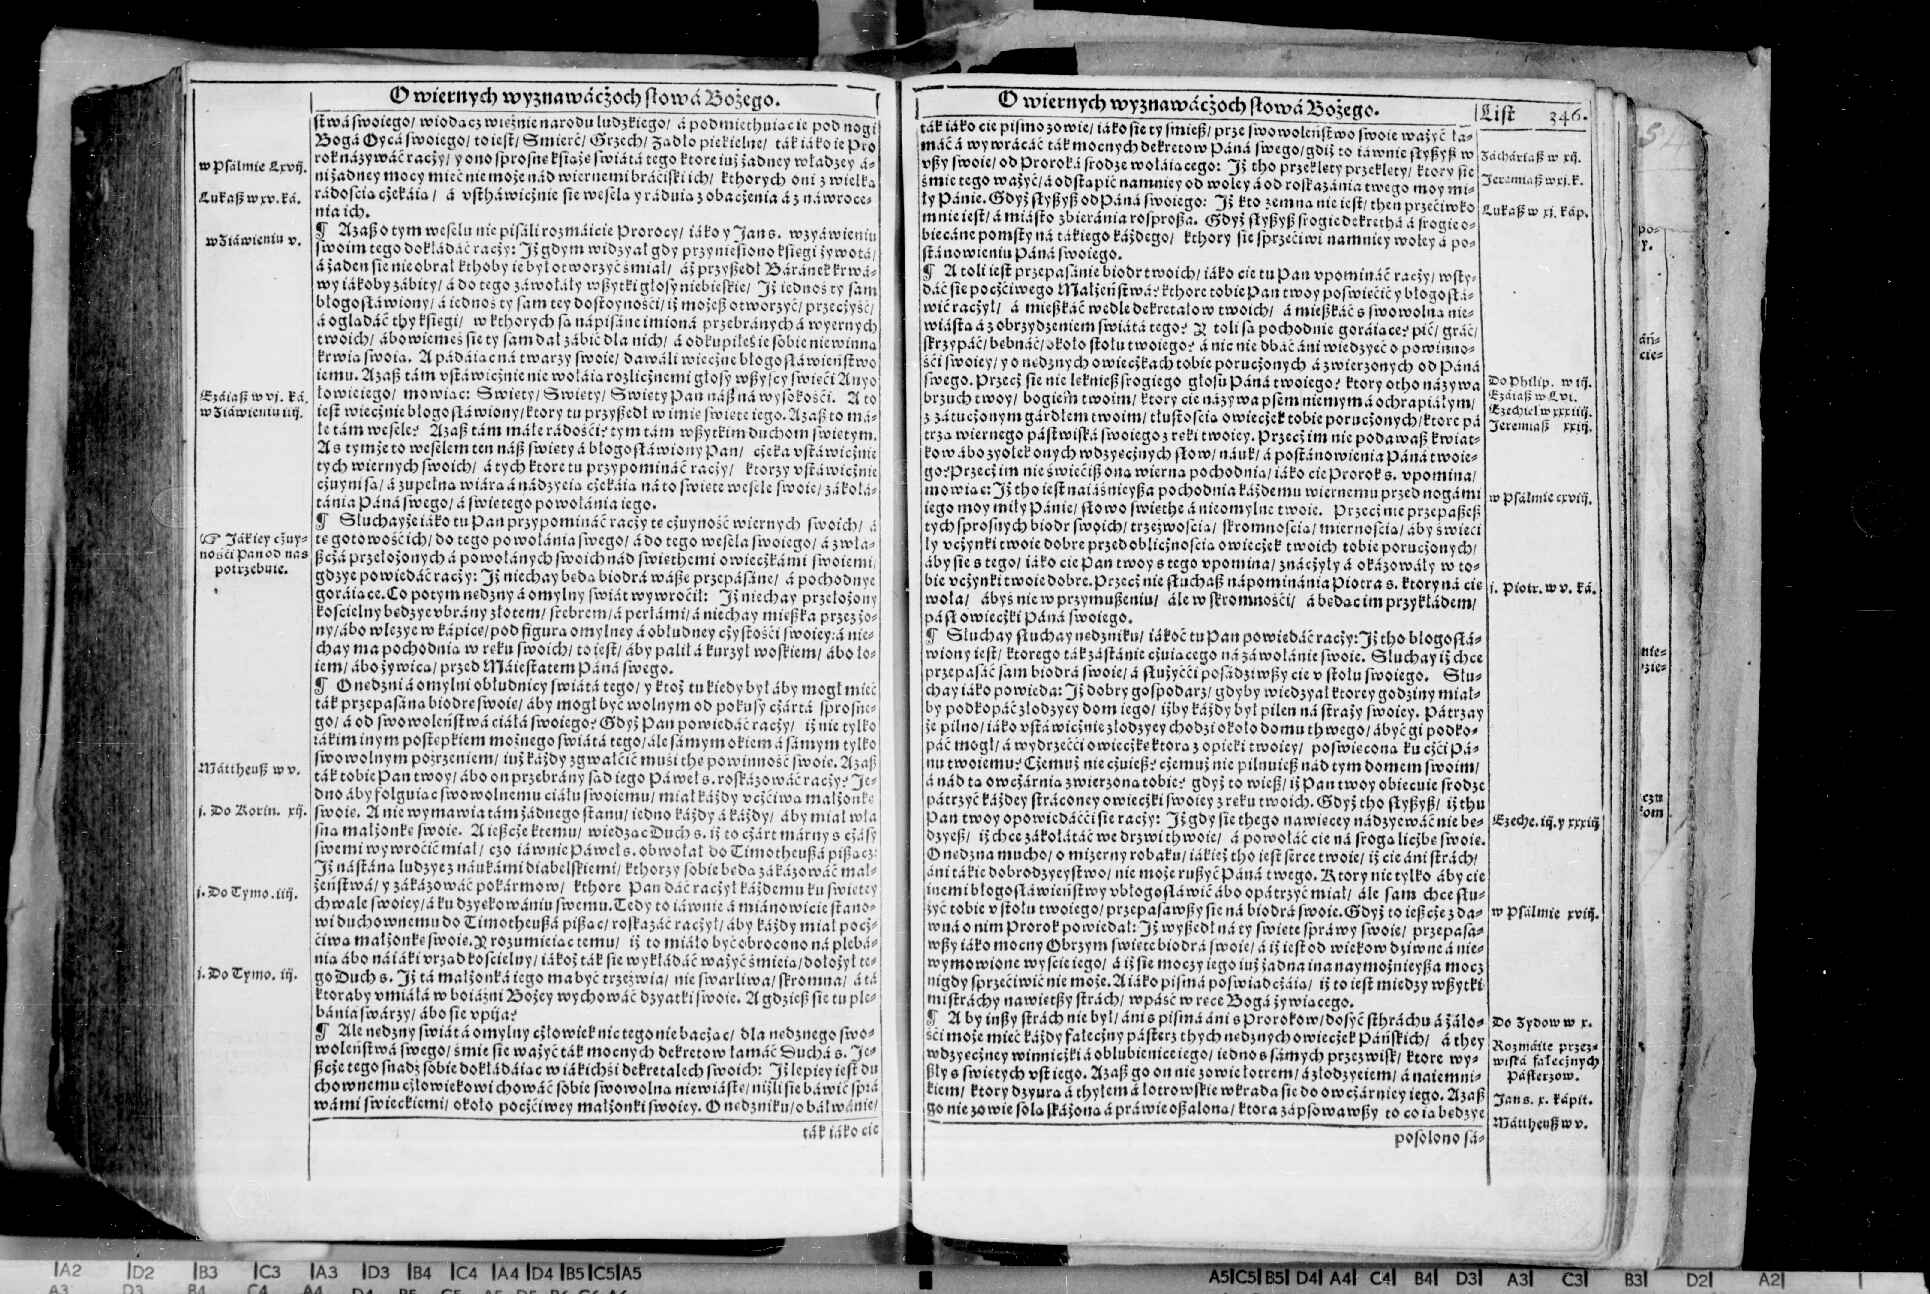 O wiernych wyznawácżoch słowá Bożego.
w Psálmie Lxvij.
Lukaß w xv. ká.
w ZIáwieniu v.
Ezáiaß w vj. ká.
w ZIáwieniu iiij.
☞ Jákiey cżuy-
nośći Pan od nas
potrzebuie.
Máttheuß w v.
j. Do Korin. xij.
j. Do Tymo. iiij.
j. Do Tymo. iij.
stwá swoiego/ wiodącz więźnie narodu ludzkiego/ á podmiethuiącie pod nogi
Bogá Oycá swoiego/ to iest/ Smierć/ Grzech/ Ządło piekielne/ ták iáko ie Pro
rok názywáć racży/ y ono sprosne książe świátá tego ktore iuż żadney władzey á-
ni żadney mocy mieć nie może nád wiernemi bráciszki ich/ kthorych oni z wielką
rádością cżekáią/ á vstháwicżnie sie weselą y ráduią z obacżenia á z náwroce-
nia ich.
¶ Azaß o tym weselu nie pisáli rozmáicie Prorocy/ iáko y Jan s. w zyáwieniu
swoim tego dokłádáć racży: Iż gdym widzyał gdy przyniesiono księgi żywotá/
á żaden sie nie obrał kthoby ie był otworzyć śmiał/ áż przyßedł Báránek krwá-
wy iákoby zábity/ á do tego záwołáły wßytki głosy niebieskie/ Iż iednoś ty sam
błogosláwiony/ á iednoś ty sam tey dostoynośći/ iż możeß otworzyć/ przecżyść/
á oglądáć thy księgi/ w kthorych są nápisáne imioná przebránych á wyernych
twoich/ ábowiemeś sie ty sam dał zábić dla nich/ á odkupiłeś ie sobie niewinną
krwią swoią. A pádáiąc ná twarzy swoie/ dawáli wiecżne błogosláwieństwo
iemu. Azaß tám vstáwicżnie nie wołáią rozlicżnemi głosy wßyscy święći Anyo
łowie iego/ mowiąc: Swięty/ Swięty/ Swięty Pan náß ná wysokośći. A to
iest wiecżnie błogosláwiony/ ktory tu przyßedł w imię święte iego. Azaß to má-
łe tám wesele? Azaß tám máłe rádośći? tym tám wßytkim duchom świętym.
A s tymże to weselem ten náß święty á błogosláwiony Pan/ cżeka vstáwicżnie
tych wiernych swoich/ á tych ktore tu przypomináć racży/ ktorzy vstáwicżnie
cżuyni są/ á zupełną wiárą á nádzyeią cżekáią ná to święte wesele swoie/ zákołá-
tánia Páná swego/ á świętego powołánia iego.
¶ Słuchayże iáko tu Pan przypomináć racży tę cżuyność wiernych swoich/ á
tę gotowość ich/ do tego powołánia swego/ á do tego wesela swoiego/ á zwła-
ßcżá przełożonych á powołánych swoich nád świethemi owiecżkámi swoiemi/
gdzye powiedáć racży: Iż niechay będą biodrá wáße przepasáne/ á pochodnye
goráiące. Co potym nędzny á omylny świát wywroćił: Iż niechay przełożony
kościelny będzye vbrány złotem/ srebrem/ á perłámi/ á niechay mießka przez żo-
ny/ ábo wlezye w kápice/ pod figurą omylney á obłudney cżystośći swoiey: á nie-
chay ma pochodnią w ręku swoich/ to iest/ áby palił á kurzył woskiem/ ábo ło-
iem/ ábo żywicą/ przed Máiestatem Páná swego.
¶ O nędzni á omylni obłudnicy świátá tego/ y ktoż tu kiedy był áby mogł mieć
ták przepasána biodrá swoie/ áby mogł być wolnym od pokusy cżártá sprosne-
go/ á od swowoleństwá ciáłá swoiego? Gdyż Pan powiedáć racży/ iż nie tylko
tákim inym postępkiem możnego świátá tego/ ále sámym okiem á sámym tylko
swowolnym poźrzeniem/ iuż káżdy zgwałćić muśi thę powinność swoię. Azaß
ták tobie Pan twoy/ ábo on przebrány sąd iego Páweł s. roskázowáć racży? Je-
dno áby folguiąc swowolnemu ciáłu swoiemu/ miał káżdy vcżćiwą małżonkę
swoię. A nie wymawia tám żadnego stanu/ iedno káżdy á káżdy/ áby miał wła
sną małżonkę swoię. A ießcże k temu/ wiedząc Duch s. iż to cżárt márny s cżásy
swemi wywroćić miał/ czo iáwnie Páweł s. obwołał do Timotheußá pißącz:
Iż nástáną ludzye z náukámi diabelskiemi/ kthorzy sobie będą zákázowáć mał-
żeństwá/ y zákázowáć pokármow/ kthore Pan dáć racżył káżdemu ku świętey
chwale swoiey/ á ku dzyękowániu swemu. Tedy to iáwnie á miánowicie stano-
wi duchownemu do Timotheußá pißąc/ roskázáć racżył/ áby káżdy miał pocż-
ćiwą małżonkę swoię. Y rozumieiąc temu/ iż to miáło być obrocono ná plebá-
nia ábo ná iáki vrząd kościelny/ iákoż ták sie wykłádáć ważyć śmieią/ dołożył te-
go Duch s. Iż tá małżonká iego ma być trzeźwia/ nie swarliwa/ skromna/ á tá
ktoraby vmiáłá w boiáźni Bożey wychowáć dzyatki swoie. A gdzieß sie tu ple-
bánia swarzy/ ábo sie vpija?
¶ Ale nędzny świát á omylny cżłowiek nic tego nie bacżąc/ dla nędznego swo-
woleństwá swego/ śmie sie ważyć ták mocnych dekretow łamáć Duchá s. Je-
ßcże tego snadź sobie dokłádáiąc w iákichśi dekretalech swoich: Iż lepiey iest du
chownemu cżłowiekowi chowáć sobie swowolną niewiástę/ niżli sie báwić sprá
wámi świeckiemi/ około pocżćiwey małżonki swoiey. O nędzniku/ o báłwánie/
ták iáko cie
O wiernych wyznawácżoch słowá Bożego.
List 346.
ták iáko cie pismo zowie/ iáko sie ty śmieß/ prze swowoleństwo swoie ważyć ła-
máć á wywrácáć ták mocnych dekretow Páná swego/ gdiż to iáwnie słyßyß w
vßy swoie/ od Proroká srodze woláiącego: Iż tho przeklęty przeklęty/ ktory sie
śmie tego ważyć/ á odstąpić namniey od woley á od roskazánia twego moy mi-
ły Pánie. Gdyż słyßyß od Páná swoiego: Iż kto ze mną nie iest/ then przećiwko
mnie iest/ á miásto zbieránia rosproßa. Gdyż słyßyß srogie dekrethá á srogie o-
biecáne pomsty ná tákiego káżdego/ kthory sie sprzećiwi namniey woley á po-
stánowieniu Páná swoiego.
¶ A toli iest przepasánie biodr twoich/ iáko cie tu Pan vpomináć racży/ wsty-
dáć sie pocżćiwego Małżeństwá? kthore tobie Pan twoy poświęćić y błogosłá-
wić racżył/ á mießkáć wedle dekretałow twoich/ á mießkáć s swowolną nie-
wiástą á z obrzydzeniem świátá tego? Y toli są pochodnie goráiące? pić/ gráć/
skrzypáć/ bębnáć/ około stołu twoiego? á nic nie dbáć áni wiedzyeć o powinno-
śći swoiey/ y o nędznych owiecżkach tobie porucżonych á zwierzonych od Páná
swego. Przecż sie nie lękniesz srogiego głosu Páná twoiego? ktory otho názywa
brzuch twoy/ bogiem twoim/ ktory cie názywa psem niemym á ochrapiáłym/
z zátucżonym gárdłem twoim/ tłustością owiecżek tobie porucżonych/ ktore pá
trzą wiernego pástwiská swoiego z ręki twoiey. Przecż im nie podawaß kwiat-
kow ábo zyołek onych wdzyęcżnych słow/ náuk/ á postánowienia Páná twoie-
go? Przecż im nie świećiß oną wierną pochodnią/ iáko cie Prorok s. vpomina/
mowiąc: Iż tho iest naiáśnieyßa pochodnia káżdemu wiernemu przed nogámi
iego moy miły Pánie/ słowo świethe á nieomylne twoie. Przecż nie przepaßeß
tych sprosnych biodr swoich/ trzeźwością/ skromnością/ miernością/ áby świeći
ły vcżynki twoie dobre przed oblicżnością owiecżek twoich tobie porucżonych/
áby sie s tego/ iáko cie Pan twoy s tego vpomina/ znácżyły á okázowáły w to-
bie vcżynki twoie dobre. Przecż nie słuchaß nápominánia Piotrá s. ktory ná cie
woła/ ábyś nie w przymußeniu/ ále w skromnośći/ á będąc im przykłádem/
pásł owiecżki Páná swoiego.
¶ Słuchay słuchay nędzniku/ iákoć tu Pan powiedáć racży: Iż tho błogosłá-
wiony iest/ ktorego ták zástánie cżuiącego ná záwołánie swoie. Słuchay iż chce
przepasáć sam biodrá swoie/ á służyćći posádziwßy cie v stołu swoiego. Słu-
chay iáko powieda: Iż dobry gospodarz/ gdyby wiedzyał ktorey godziny miał-
by podkopáć złodzyey dom iego/ iżby káżdy był pilen ná straży swoiey. Pátrzay
że pilno/ iáko vstáwicżnie złodzyey chodzi około domu thwego/ ábyć gi podko-
páć mogł/ á wydrzećći owiecżkę ktora z opieki twoiey/ poświęcona ku cżći Pá-
nu twoiemu? Cżemuż nie cżuieß? cżemuż nie pilnuieß nád tym domem swoim/
á nád tą owcżárnią zwierzoną tobie? gdyż to wieß/ iż Pan twoy obiecuie srodze
pátrzyć káżdey stráconey owiecżki swoiey z ręku twoich. Gdyż tho słyßyß/ iż thu
Pan twoy opowiedáćći sie racży: Iż gdy sie thego nawięcey nádzyewáć nie bę-
dzyeß/ iż chce zákołátáć we drzwi thwoie/ á powołáć cie ná srogą licżbę swoię.
O nędzna mucho/ o mizerny robaku/ iákież tho iest serce twoie/ iż cie áni strách/
áni tákie dobrodzyeystwo/ nie może rußyć Páná twego. Ktory nie tylko áby cie
inemi błogosláwieństwy vbłogosláwić ábo opátrzyć miał/ ále sam chce słu-
żyć tobie v stołu twoiego/ przepasawßy sie ná biodrá swoie. Gdyż to ießcże z da-
wná o nim Prorok powiedał: Iż wyßedł ná ty święte spráwy swoie/ przepasa-
wßy iáko mocny Obrzym święte biodrá swoie/ á iż iest od wiekow dziwne á nie-
wymowione wyście iego/ á iż sie moczy iego iuż żadna ina naymożnieyßa mocz
nigdy sprzećiwić nie może. A iáko pismá poświadcżáią/ iż to iest miedzy wßytki
mi stráchy nawiętßy strách/ wpáść w ręce Bogá żywiącego.
¶ A by inßy strách nie był/ áni s pismá áni s Prorokow/ dosyć sthráchu á żáło-
śći może mieć káżdy fałecżny pásterz thych nędznych owiecżek Páńskich/ á they
wdzyęcżney winnicżki á oblubienice iego/ iedno s sámych przezwisk/ ktore wy-
ßły s świętych vst iego. Azaß go on nie zowie łotrem/ á złodzyeiem/ á naiemni-
kiem/ ktory dzyurą á thyłem á łotrowskie wkrada sie do owcżárniey iego. Azaß
go nie zowie solą skáżoną á práwie oßáloną/ ktora zápsowawßy to co ią będzye
posolono sá-
Zácháriaß w xij.
Jeremiaß w xj. k.
Lukaß w xj. káp.
Do Philip. w iij.
Ezáiaß w Lvi.
Ezechiel w xxxiiij.
Jeremiaß xxiij.
w Psálmie cxviij.
j. Piotr. w v. ká.
Ezeche. iij. y xxxiij
w Psálmie xviij.
Do Zydow w x.
Rozmáite przez-
wiská fałecżnych
Pásterzow.
Jan s. x. kápit.
Máttheuß w v.